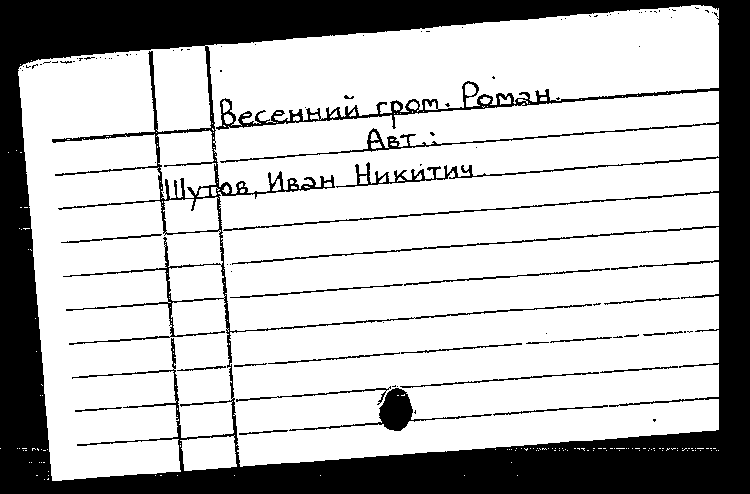 Весенний гром. Роман.
Авт.:
Шутов, Иван Никитич